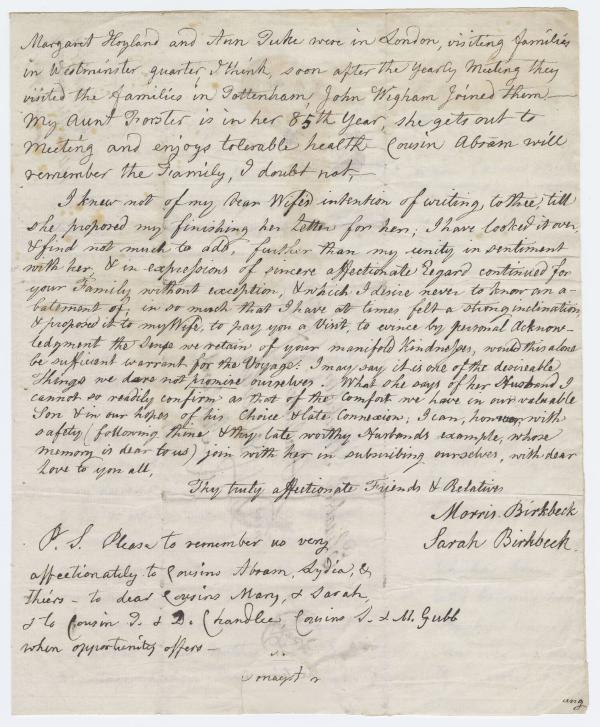 Margaret Hoyland and Ann Tuke were in London, visiting families
in Westminster quarter I think, soon after the Yearly Meeting they
visited the families in Tottenham, John Wigham Joined them—
My Aunt Forster is in her 85th Year, she gets out to
Meeting and enjoys tolerable health Cousin Abram will
remember the Family, I doubt not,—
I knew not of my Dear Wife's intention of writing to thee, till
she proposed my finishing her Letter for her; I have looked it over,
& find not much to add, further than my unity in sentiment
with her, & in expressions of sincere affectionate Regard continued for
your Family without exception, & which I desire never to know an a-
batement of; in so much that I have at times felt a strong inclination,
& proposed it to my Wife, to pay you a Visit, to evince by personal Acknow-
ledgment the Sense we retain of your manifold Kindnesses, would this alone
be sufficient warrant for the Voyage: I may say it is one of the desireable
Things we dare not promise ourselves. What she says of her Husband I
cannot so readily confirm as that of the Comfort we have in our valuable
Son & in our hopes of his Choice & late Connexion; I can, however, with
safety (following thine & thy late worthy Husbands example, whose
memory is dear to us) join with her in subscribing ourselves, with dear
Love to you all,
Thy truly affectionate Friends & Relatives
Morris Birkbeck
Sarah Birkbeck.
P. S. Please to remember us very
affectionately to Cousins Abram, Lydia, &
theirs— to dear Cousins Mary, & Sarah,
& to Cousin T. & D. Chandlee, Cousins S. & M. Gubb
when opportunity offers—
ang